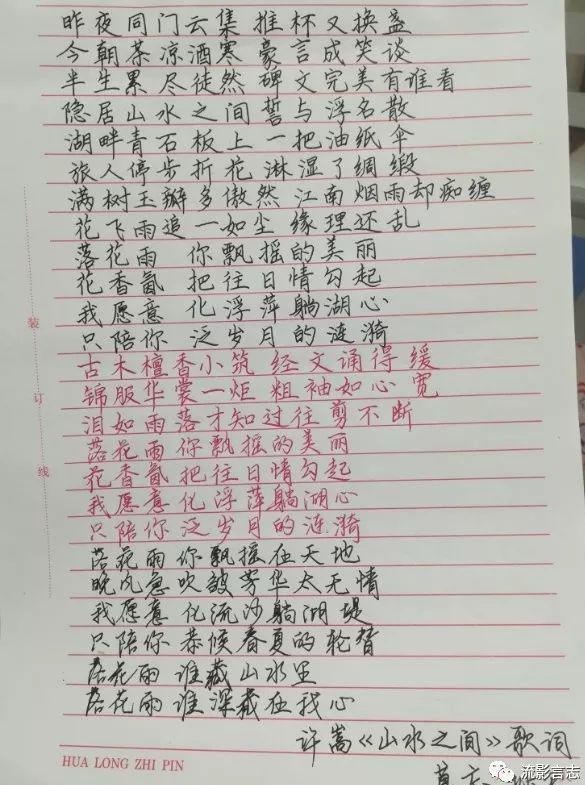 昨夜同门云集 推杯又换盏
今朝茶凉酒寒 豪言成笑谈
半生累 尽徒然 碑文完美有谁看
隐居山水之间 誓与浮名散
湖畔青石板上 一把油纸伞
旅人停步折花 淋湿了绸缎
满树玉瓣多傲然 江南烟雨却痴缠
花飞雨追一如尘缘 理还乱
落花雨 你飘摇的美丽
花香氤 把往日情勾起
我愿意 化浮萍躺湖心
只陪你 泛岁月的涟漪
古木檀香小筑 经文诵得缓
锦服华裳一炬 粗袖如心宽
泪如雨落才知过往剪不断
落花雨 你飘摇的美丽
花香氤 把往日情勾起
我愿意 化浮萍躺湖心
只陪你 泛岁月的涟漪
落花雨 你飘摇在天地
晚风急 吹皱芳华太无情
我愿意 化流沙躺湖堤
只陪你 恭候春夏的轮替
落花雨 谁藏山水里
落花雨 谁深藏在我心
许嵩《山水之间》歌词
装
订
线
HUA LONG ZHI PIN
流影言志